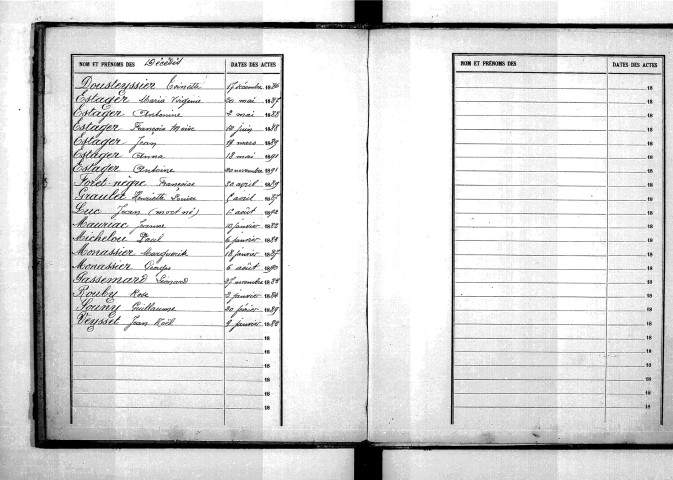 NOM ET PRÉNOMS DES Décédés DATES DES ACTES
Dousteyssier Toinette 17 décembre 18
Estager Maria Virginie 20 mai 1887
Estager Antonine 2 mai 1888
Estager François Marie 20 juin 1888
Estager Jean 19 mars 1889
Estager Anna 18 mai 1891
Estager Antoine 20 novembre 1891
Foret-nègre Françoise 30 avril 1889
Graulet Henriette Louise avril 1887
Luc Jean (mort né) août 1892
Mauriac Jeanne 10 janvier 188
Michelou Paul 6 janvier 188
Monassier Marguerite 18 janvier 1887
Monassier Georges 6 août 1890
Gassemard Léonard 27 novembre 188
Rouby Rose 2 janvier 188
Souny Guillaume 20 février 1889
Veysset Jean Noël 9 janvier 18
18
18
18
18
18
18
NOM ET PRÉNOMS DES DATES DES ACTES
18
18
18
18
18
18
18
18
18
18
18
18
18
18
18
18
18
18
18
18
18
18
18
18